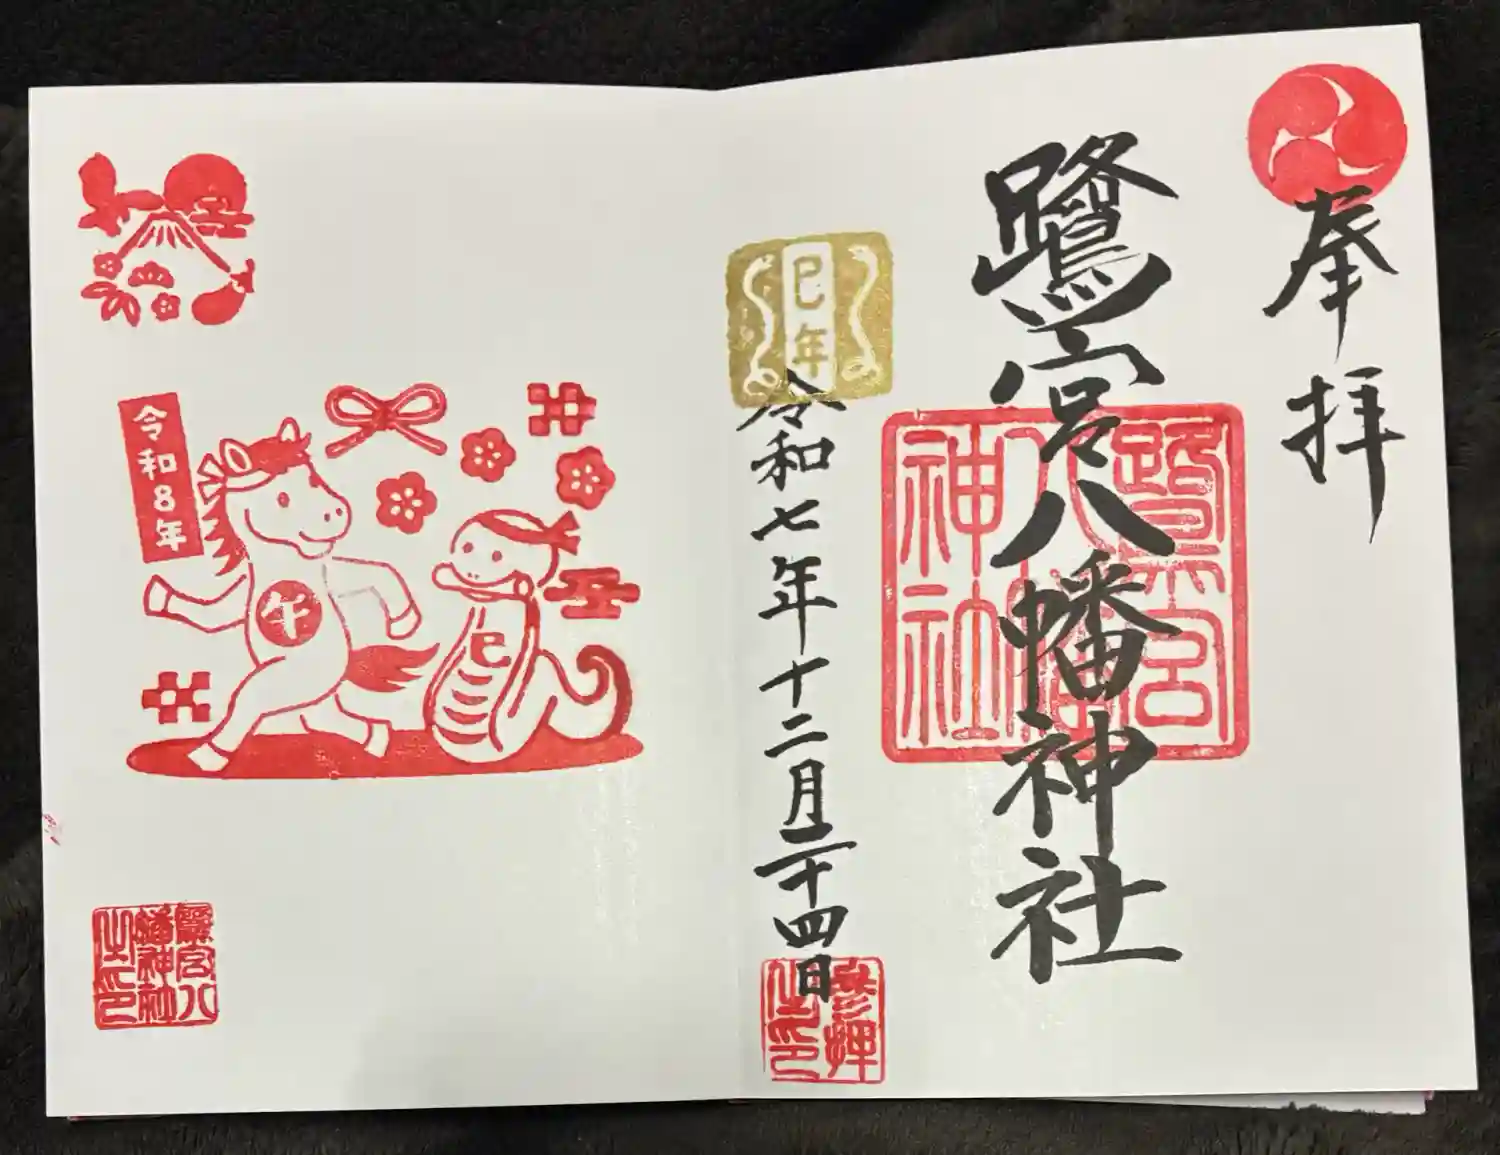 奉拝
鷺宮八幡神社
鷺宮八幡神社
巳年
令和七年十二月二十四日
参拝之印
令和8年
午
巳
鷺宮八幡神社之印